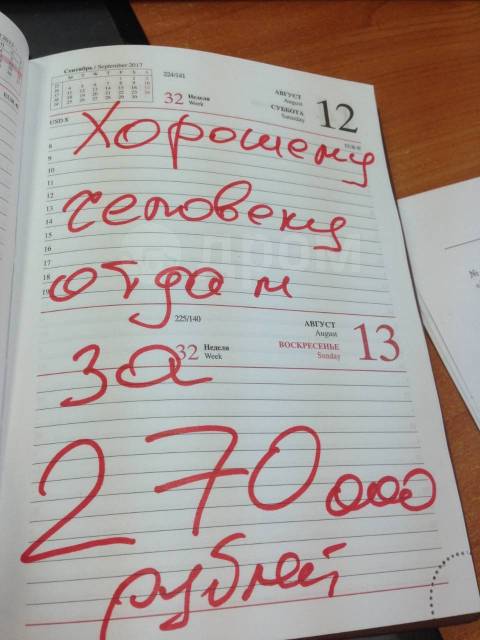 Сентябрь / September 2017
224/141
АВГУСТ
August
32 Неделя
Week
СУББОТА
Saturday
12
USD $
EUR €
Хорошему
8
9
10
11
12
человеку
13
14
15
16
дром
17
отдам
18
19
225/140
АВГУСТ
August
32 Неделя
Week
ВОСКРЕСЕНЬЕ
Sunday
13
за
270 000
рублей
№